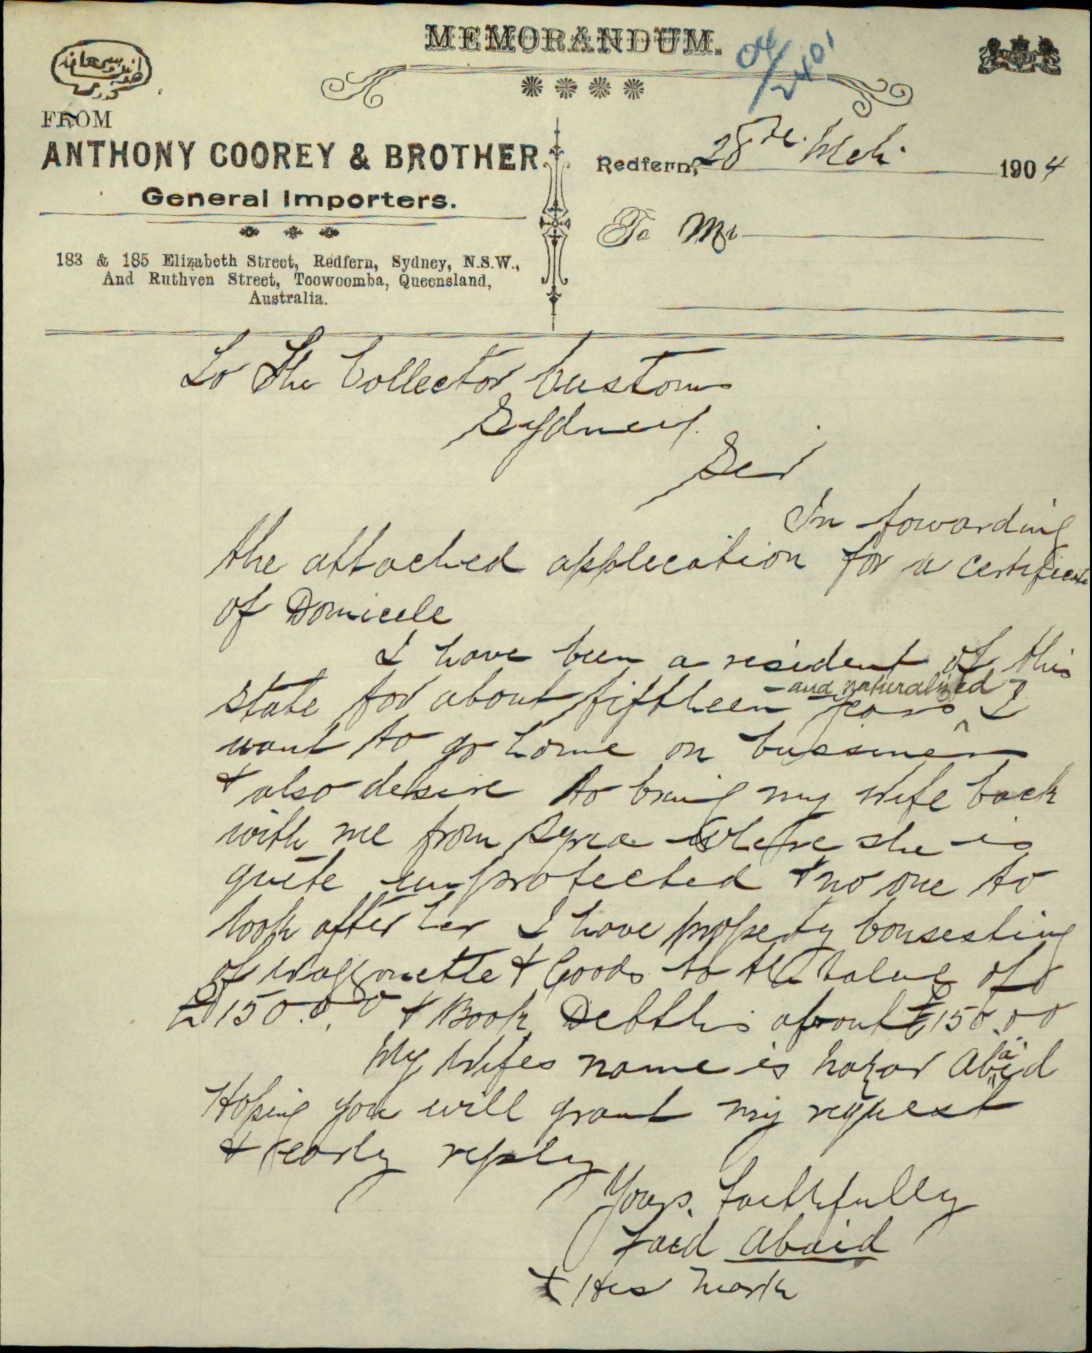 MEMORANDUM.
04/2401
FROM
ANTHONY COOREY & BROTHER
General Importers.
183 & 185 Elizabeth Street, Redfern, Sydney, N.S.W.,
And Ruthven Street, Toowoomba, Queensland,
Australia.
Redfern, 28th Mch 1904
To Mr
To The Collector Customs
Sydney.
Sir
In forwarding
the attached application for a certificate
of Domicile
I have been a resident of this
state for about fiftheen years and naturalized I
want to go home on bussiness
& also desire to bring my wife back
with me from Syria where she is
quite unprotected & no one to
look after her I have property Consesting
of Waggonette & Goods to the value of
£150.0.0 & Book Debtths about £150.0.0
My Wifes name is hazar Abaid
Hoping you will grant my request
& early reply
Yours faithfully
Faid Abaid
x His Mark